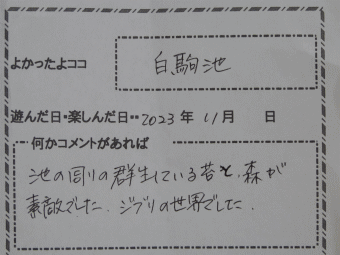 よかったよココ 白駒池
遊んだ日・楽しんだ日・・2023年 11月 日
何かコメントがあれば
池の周りの群生している苔と、森が
素敵でした。ジブリの世界でした。